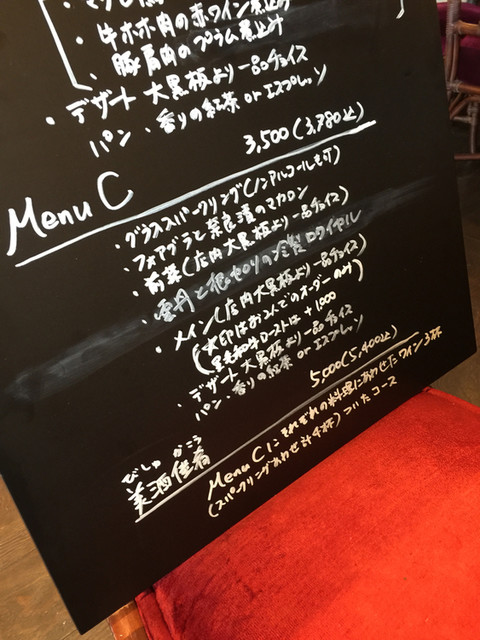 ・牛ホホ肉の赤ワイン煮上げ
・豚肩肉のプラム煮上げ
・デザート 大黒板より一品チョイス
パン・香りの紅茶 or エスプレッソ
3,500(3,780込)
Menu C
・グラススパークリング(ノンアルコールも可)
・フォアグラと奈良漬のマカロン
・前菜(店内大黒板より一品チョイス)
・雲丹と根セロリの冷製ロワイヤル
・メイン(店内大黒板より一品チョイス)
(※印はお2人でのオーダーのみ)
黒毛和牛ローストは+1000
・デザート 大黒板より一品チョイス
パン・香りの紅茶 or エスプレッソ
5,000(5,400込)
びしゅ かこう
美酒佳肴
Menu Cにそれぞれの料理にあわせたワイン3杯
(スパークリングあわせ計4杯)ついたコース